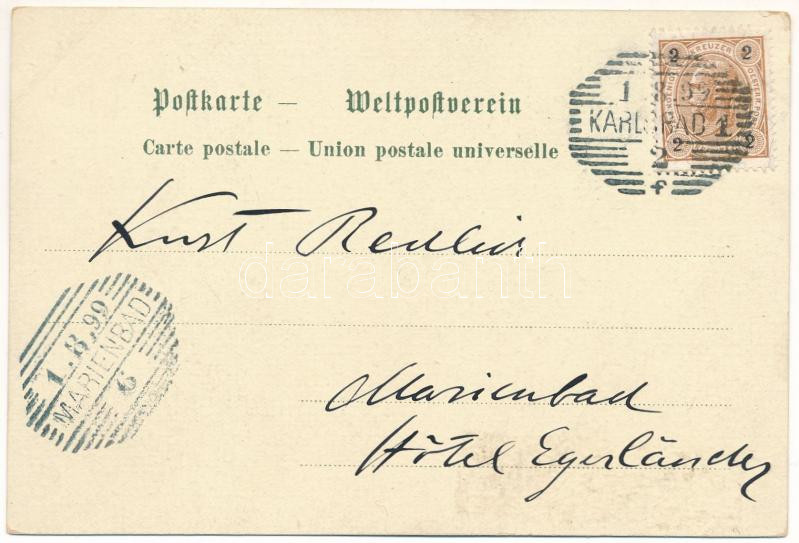 Postkarte — Weltpostverein
Carte postale — Union postale universelle
2 KREUZER 2
2 2
1 8 99
KARLSBAD 1
2
f
Kurt
1.8.99
MARIENBAD
6
Marienbad
Hôtel Egerländer
darabanth